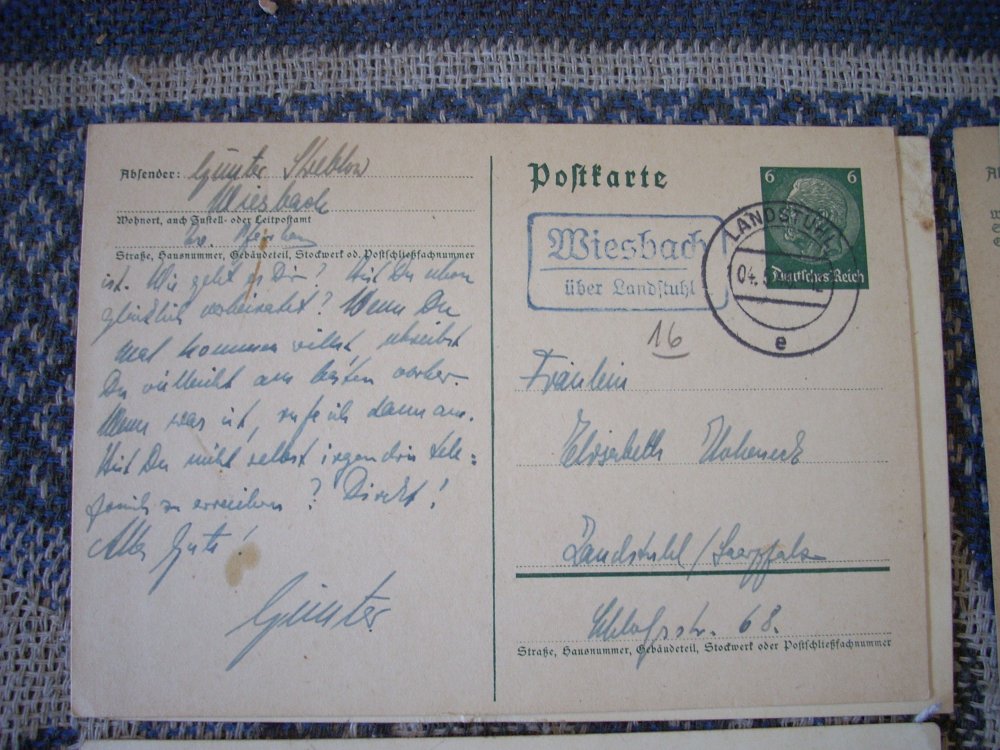 Absender: Günter
Wiesbach
Wohnort, auch Zustell- oder Leitpostamt
Straße, Hausnummer, Gebäudeteil, Stockwerk od. Postschließfachnummer
ist. Wie geht es Dir? Bist Du schon
glücklich verheiratet? Wenn Du
mal kommen willst, schreibst
Du vielleicht am besten vorher.
Wenn was ist, rufe ich dann an.
Bist Du nicht selbst irgendwie tele=
fonisch zu erreichen? Direkt!
Alles Gute!
Günter.
Postkarte
6 6
Deutsches Reich
Wiesbach
über Landstuhl
LANDSTUHL
04.
e
16
Fräulein
Elisabeth Hoheneck
Landstuhl/Saarpfalz
Schloßstr. 68.
Straße, Hausnummer, Gebäudeteil, Stockwerk oder Postschließfachnummer